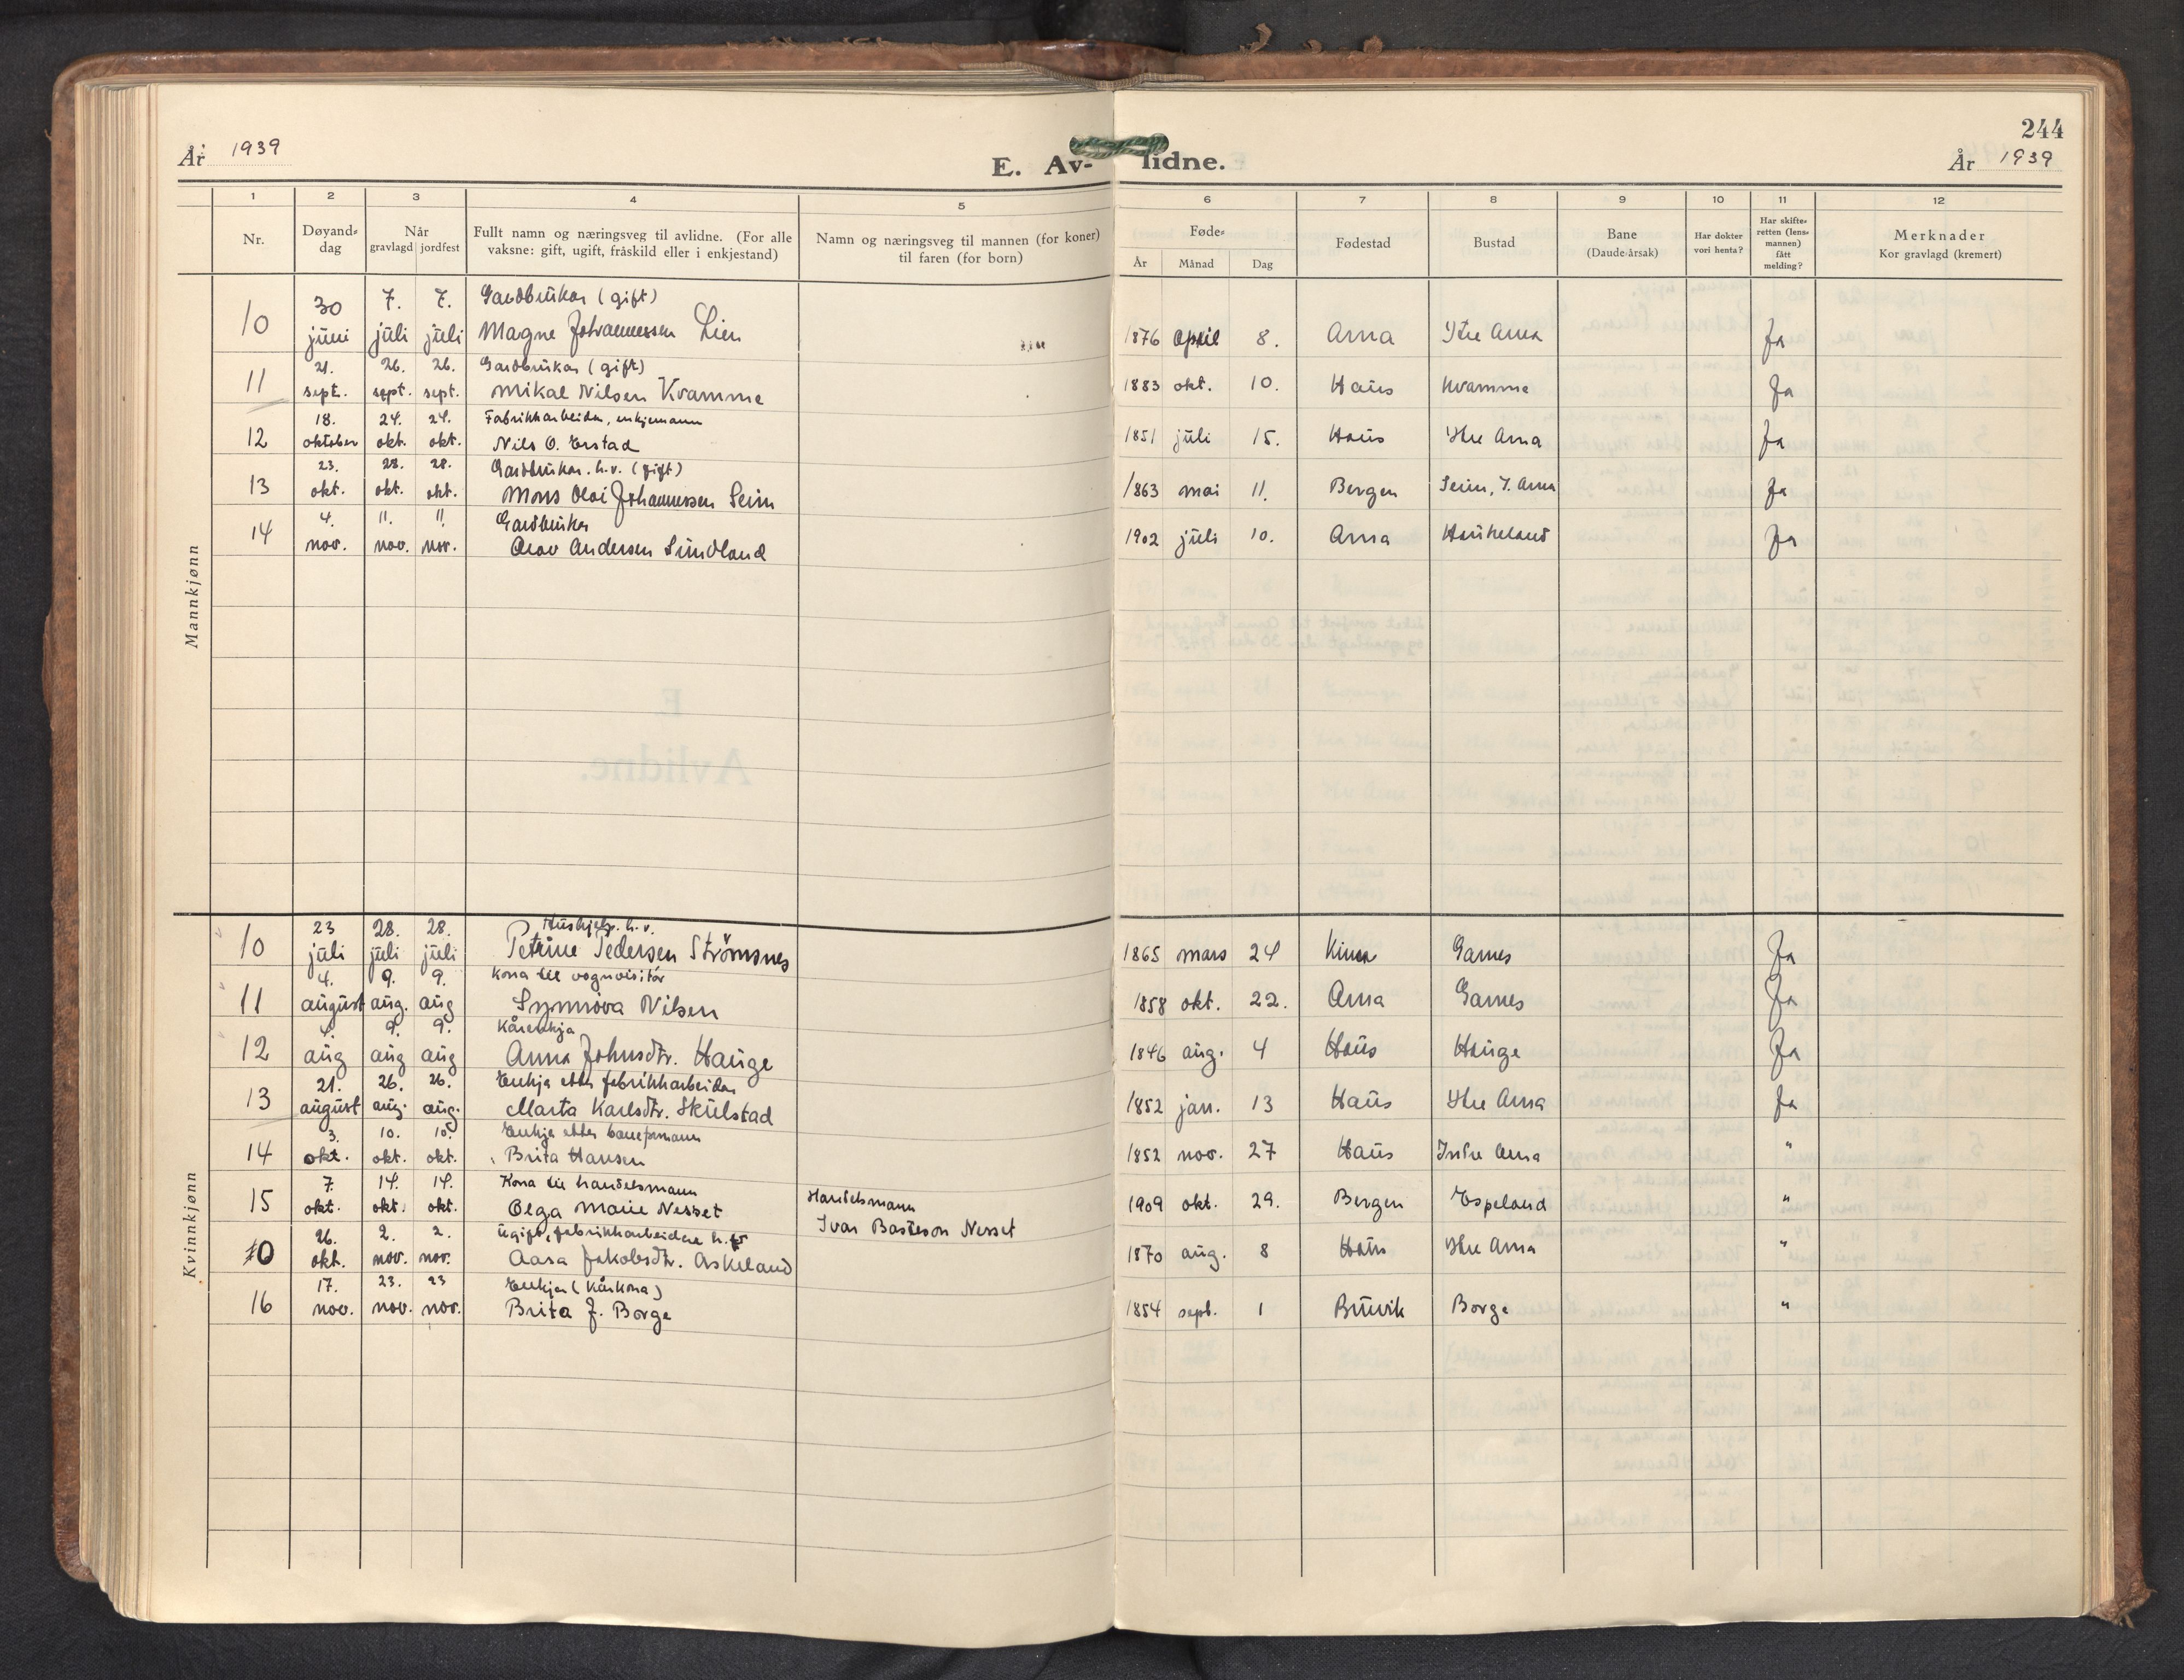 244
År 1939
E. Av-lidne.
År 1939
1 2 3 4 5 6 7 8 9 10 11 12
Nr.
Døyand-dag
Når
gravlagd jordfest
Fullt namn og næringsveg til avlidne. (For alle
vaksne: gift, ugift, fråskild eller i enkjestand)
Namn og næringsveg til mannen (for koner)
til faren (for born)
Føde-
År Månad Dag
Fødestad
Bustad
Bane
(Daude-årsak)
Har dokter
vori henta?
Har skifte-
retten (lens-
mannen)
fått
melding?
Merknader
Kor gravlagd (kremert)
Mannkjønn
30 7. 7. Gardbrukar (gift)
10 juni juli juli Magne Johannessen Lien 1876 april 8. Arna Ytre Arna Ja
21. 26. 26. Gardbrukar (gift)
11 sept. sept. sept. Mikal Nilsen Kvamme 1883 okt. 10. Haus Kvamme Ja
18. 24. 24. Fabrikkarbeidar, enkjemann
12 oktober okt. okt. Nils O. Erstad 1851 juli 15. Haus Ytre Arna Ja
23. 28. 28. Gardbrukar. h.v. (gift)
13 okt. okt. okt. Mons Olai Johannessen Seim 1863 mai 11. Bergen Seim, Y. Arna Ja
4. 11. 11. Gardbrukar
14 nov. nov. nov. Olav Andersen Sundland 1902 juli 10. Arna Haukeland Ja
Kvinnkjønn
23 28. 28. Hushjelp. h.v.
10 juli juli juli Petrine Pedersen Strömsnes 1865 mars 24 Kinn Garnes Ja
4. 9. 9. Kona til vognvisitör
11 august aug. aug Synnöva Nilsen 1858 okt. 22. Arna Garnes Ja
4. 9. 9. Kårenkja
12 aug aug aug Anna Johnsdtr. Hauge 1846 aug. 4 Haus Hauge Ja
21. 26. 26. Enkja etter fabrikkarbeidar
13 august aug. aug. Marta Karlsdtr. Skulstad 1852 jan. 13 Haus Ytre Arna Ja
3. 10. 10. Enkja etter baneformann
14 okt. okt. okt. Brita Hansen 1852 nov. 27 Haus Indre Arna "
7. 14. 14. Kona til handelsmann Handelsmann
15 okt. okt. okt. Olga Marie Nesset Ivar Basteson Nesset 1909 okt. 29. Bergen Espeland "
26. 2. 2. ugift, fabrikkarbeidar h.v.
10 okt. nov. nov. Aasa Jakobsdtr. Askeland 1870 aug. 8 Haus Ytre Arna "
17. 23. 23 Enkja (kårkona)
16 nov. nov. nov. Brita J. Borge 1854 sept. 1 Bruvik Borge "